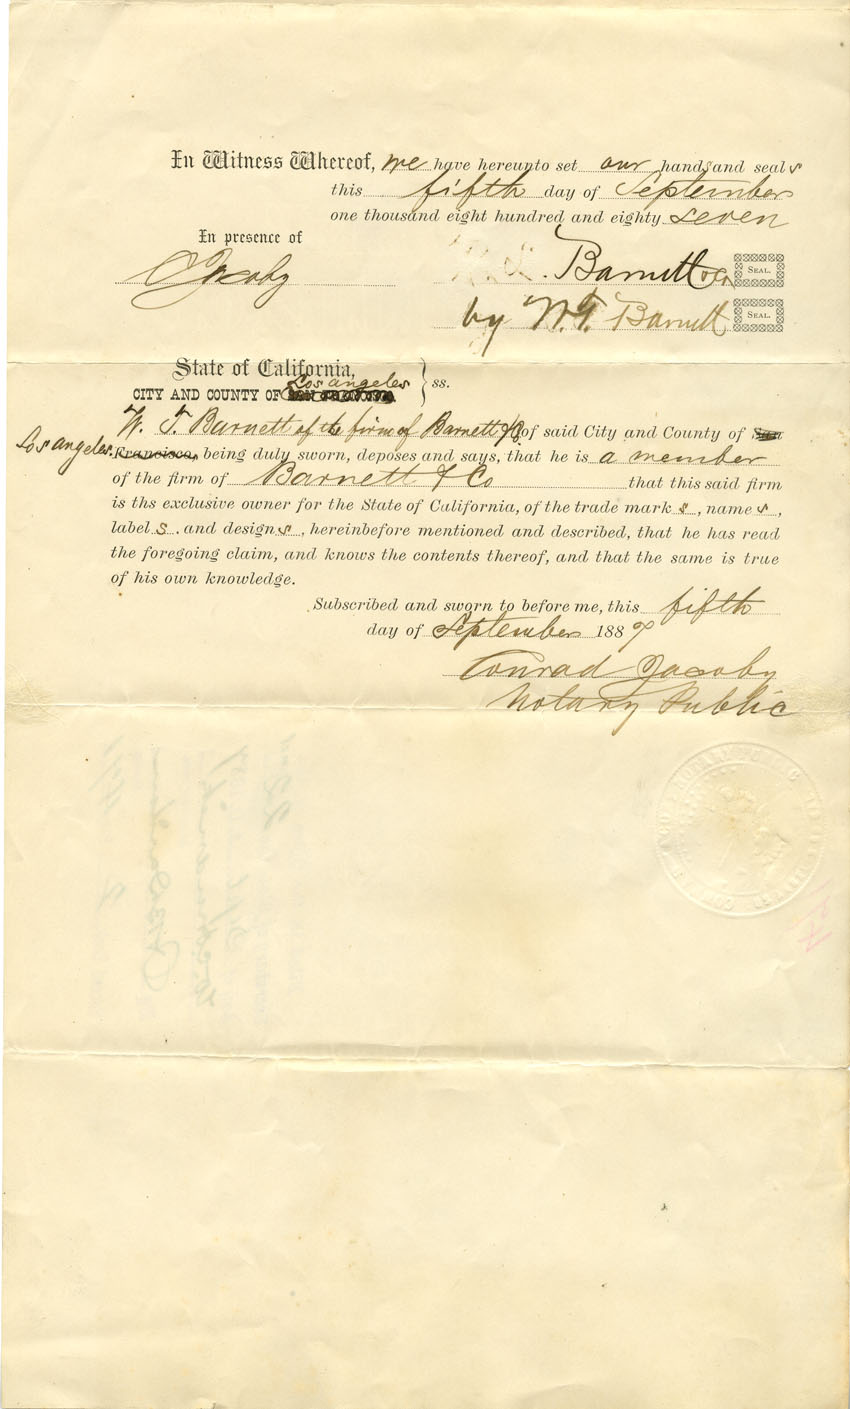 In Witness Whereof, we have hereunto set our hands and seals
this fifth day of September
one thousand eight hundred and eighty seven
In presence of
C Jacoby
Barnett & Co SEAL.
by W. T. Barnett SEAL.
State of California,
Los Angeles
CITY AND COUNTY OF SAN FRANCISCO } ss.
W. T. Barnett of the firm of Barnett & Co of said City and County of San
Los Angeles Francisco, being duly sworn, deposes and says, that he is a member
of the firm of Barnett & Co that this said firm
is ths exclusive owner for the State of California, of the trade mark s, name s,
label s. and design s, hereinbefore mentioned and described, that he has read
the foregoing claim, and knows the contents thereof, and that the same is true
of his own knowledge.
Subscribed and sworn to before me, this fifth
day of September 1887
Conrad Jacoby
Notary Public